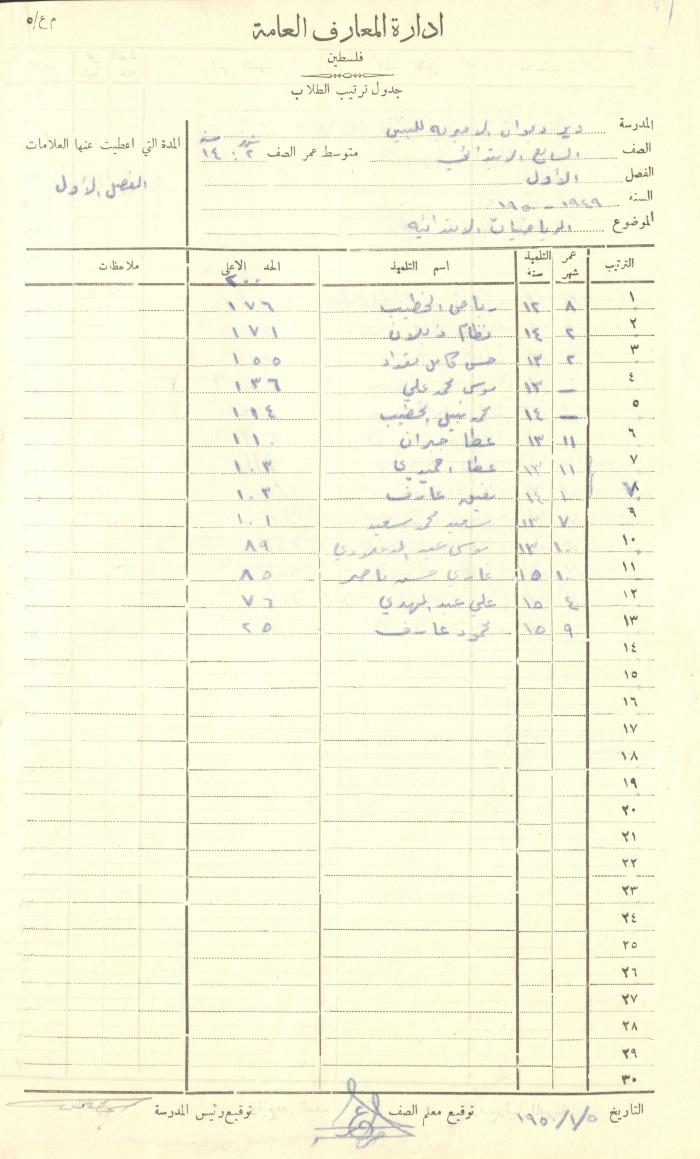 م ع/٥
ادارة المعارف العامة
فلسطين
جدول ترتيب الطلاب
المدرسة دير دبوان الاميرية للبنين
الصف السابع الابتدائي متوسط عمر الصف شهر ٢ : سنة ١٤
الفصل الأول
السنة ١٩٤٩ - ١٩٥٠
الموضوع الرياضيات الابتدائيه
المدة التي اعطيت عنها العلامات
الفصل الأول
الترتيب عمر التلميذ شهر سنة اسم التلميذ الحد الاعلى ملاحظات
٢٠٠
١ ٨ ١٢ رياض الخطيب ١٧٦
٢ ٢ ١٤ نظام ١٧١
٣ ٢ ١٣ حسن كامل ١٥٥
٤ — ١٣ موسى محمد علي ١٣٦
٥ — ١٤ محمد نبيل الخطيب ١١٤
٦ ١١ ١٣ عطا جبران ١١٠
٧ ١١ ١٣ عطا ١٠٣
٨ ٧ ١ ١٤ عارف ١٠٣
٩ ٧ ١٣ سعيد محمد سعيد ١٠١
١٠ ١٠ ١٣ موسى عبد ٨٩
١١ ١٠ ١٥ غازي حسن ناصر ٨٥
١٢ ٤ ١٥ علي عبد المهدي ٧٦
١٣ ٩ ١٥ محمود عارف ٢٥
١٤
١٥
١٦
١٧
١٨
١٩
٢٠
٢١
٢٢
٢٣
٢٤
٢٥
٢٦
٢٧
٢٨
٢٩
٣٠
التاريخ ١٩٥٠/١/٥ توقيع معلم الصف توقيع رئيس المدرسة